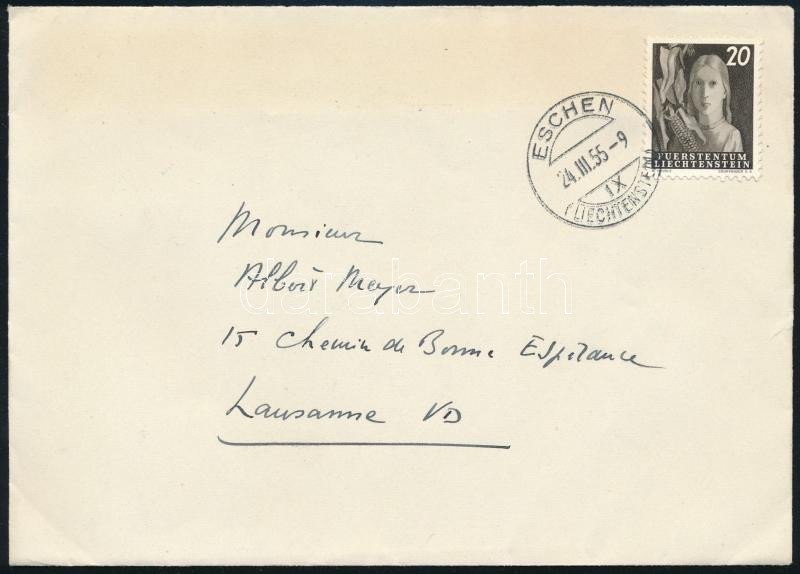 20
FUERSTENTUM
LIECHTENSTEIN
ESCHEN
24.III.55-9
IX
(LIECHTENSTEIN)
Monsieur
Albert Meyer
15 Chemin de Bonne Espérance
Lausanne VD
darabanth